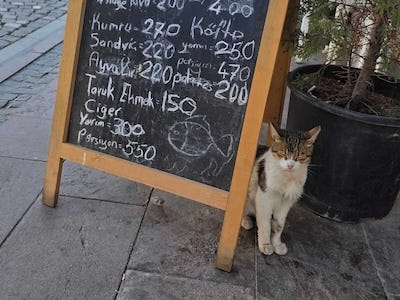 200 400
Kumru 270 Köfte
Sandviç 220 yarım 250
Ayvalık 220 porsiyon 470
patates 200
Tavuk Ekmek 150
Ciğer
Yarım = 300
Porsiyon = 550